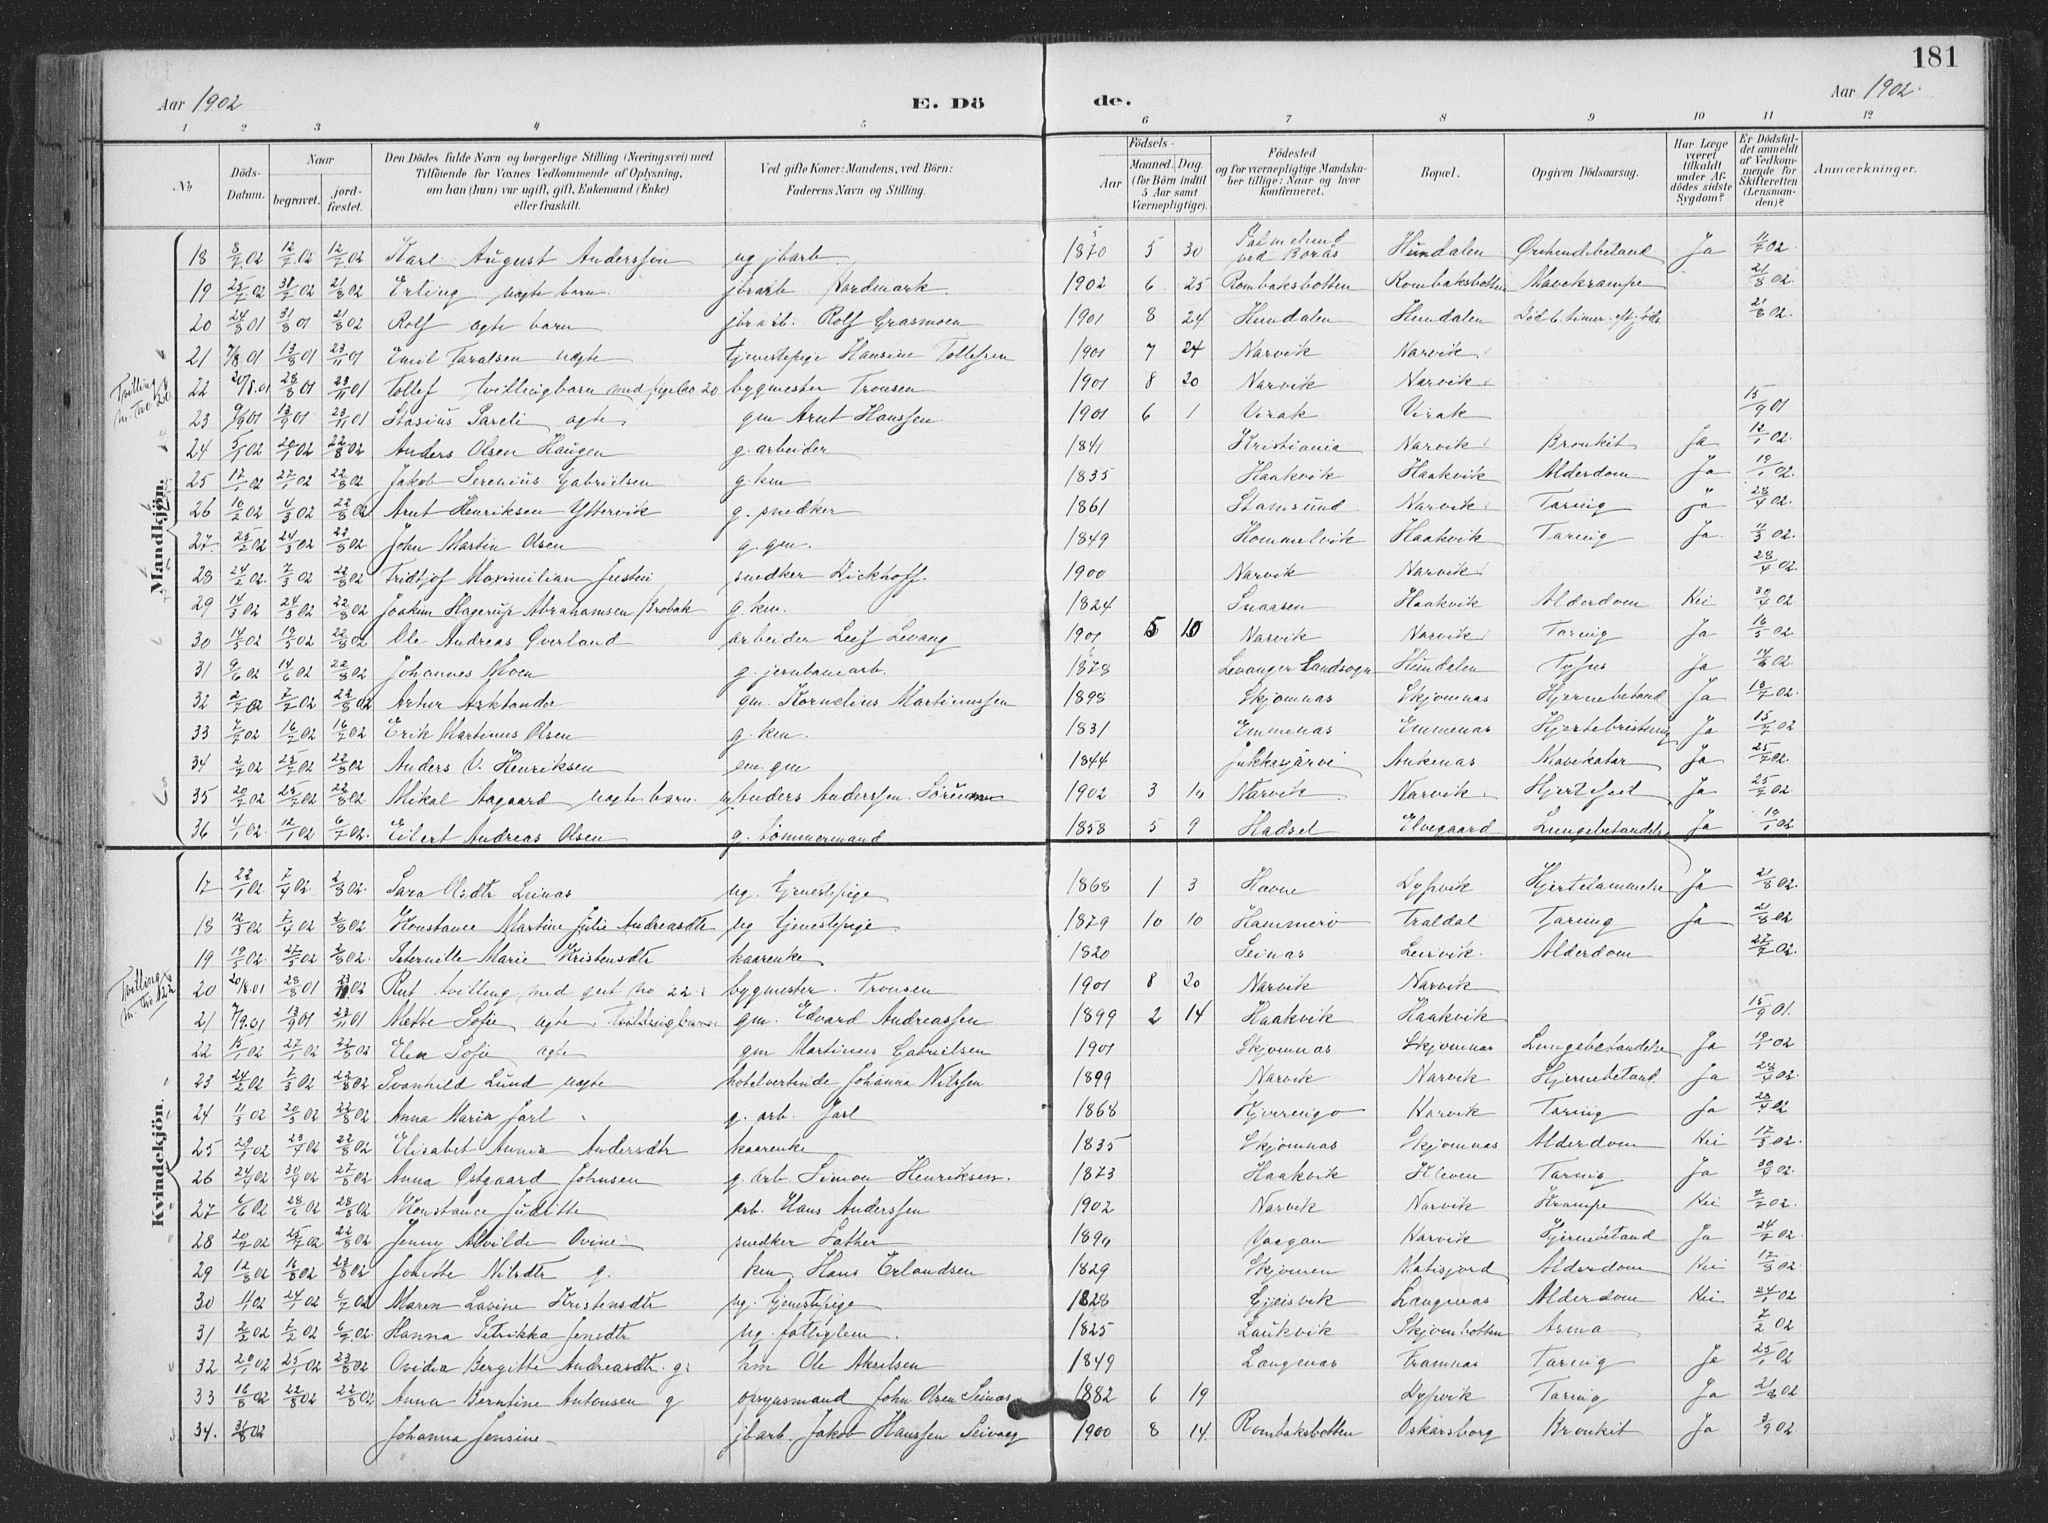 181
Aar 1902
E. Dö de.
Aar 1902.
1 2 3 4 5 6 7 8 9 10 11 12
No
Döds-Datum.
Naar begravet. jordfæstet.
Den Dödes fulde Navn og borgerlige Stilling (Næringsvei) med Tilföiende for Voxnes Vedkommende af Oplysning, om han (hun) var ugift, gift, Enkemand (Enke) eller fraskilt.
Ved gifte Koner: Mandens, ved Börn: Faderens Navn og Stilling.
Födsels- Aar Maaned. Dag. (for Börn indtil 5 Aar samt Værnepligtige).
Födested og for værnepligtige Mandskaber tillige: Naar og hvor konfirmeret.
Bopæl.
Opgiven Dödsaarsag.
Har Læge været tilkaldt under Afdödes sidste Sygdom?
Er Dödsfaldet anmeldt af Vedkommende for Skifteretten (Lensmanden)?
Anmærkninger.
Mandkjön.
18 8/7.02 12/7.02 12/7.02 Karl August Anderssen ug jbarb. 1870 5 30 ved Borås Hundalen Ja 02
19 25/7 02 31/7 02 21/8 02 Erling uægte barn. jbarb Nordmark. 1902 6 25 Rombaksbotten Rombaksbotten Mavekrampe 21/8 02.
20 24/8 01 31/8 01 21/8 02 Rolf ægte barn jbrarb. Rolf Grasmoen 1901 8 24 Hundalen Hundalen Död 6 timer 21/8 02.
21 7/8 01 13/8 01 23/11 01 Emil Taralsen uægte tjenestepige Hansine Tollefsen 1901 7 24 Narvik Narvik
Tvilling m. No 20
22 20/8.01 28/8 01 23/11 01 Tollef tvillingbarn med pige No 20 bygmester Tronsen 1901 8 20 Narvik Narvik
23 9/9 01 13/9 01 23/11 01 Stasius Pareli ægte gm Arnt Hanssen 1901 6 1 Virak Virak 15/9 01
24 5/1 02 20/1 02 22/8 02 Anders Olsen Haugen g. arbeider 1841 Kristiania Narvik Bronkit Ja 12/1 02.
25 17/1 02 27/1 02 22/8 02 Jakob Serenius Gabrielsen g. km 1835 Haakvik Haakvik Alderdom Ja 19/1 02.
26 16/2 02 4/3 02 22/8 02 Arnt Henriksen Yttervik g. snedker 1861 Stamsund Narvik Tæring Ja 28/4 02.
27. 25/2 02 24/3 02 22/8 02 John Martin Olsen g. gm. 1849 Hommelvik Haakvik Tæring Ja. 4/3 02.
28 24/2 02. 7/3 02 22/8 02 Fridtjof Maximilian Justin snedker Dickhoff. 1900 Narvik Narvik 28/4 02.
29 14/3 02 24/3 02 22/8 02 Joakim Hagerup Abrahamsen Brobak g. km. 1824 Snaasen Haakvik Alderdom Nei 30/4 02
30 14/5 02 19/5 02 22/8 02 Ole Andreas Överland arbeider Leif Levang 1901 5 10 Narvik Narvik Tæring Ja 16/5 02
31 9/6 02 14/6 02 22/8 02 Johannes Moen g. jernbanearb. 1878 Levanger Landsogn Hundalen Tyfus Ja 14/6 02.
32 2/7 02 7/7 02 22/8 02 Artur Arktander gm. Kornelius Martinussen 1898 Skjomnæs Skjomnæs Hjernebetænd Ja 12/7 02.
33 7/7 02 16/7 02 16/7 02 Erik Martinus Olsen g. km. 1831 Emmenæs Emmenæs Hjertebristning Ja 15/7 02
34 2/7 02 25/7 02 22/8 02 Anders V. Henriksen em. gm 1844 Jukkesjärvi Ankenæs Mavekatar Ja 25/7 02.
35 20/7 02 25/7 02 22/8 02. Mikal Aagaard uægte barn. Anders Anderssen 1902 3 10 Narvik Narvik Hjertefeil Ja 25/7 02.
36 4/1 02 12/1 02 6/7 02. Eilert Andreas Olsen g. tömmermand 1858 5 9 Hadsel Elvegaard Lungebetændelse Ja 10/1 02
Kvindekjön.
17 22/1 02 7/4 02 2/8 02. Sara Olsdtr Leinæs ug. tjenestepige 1868 1 3 Havne Dypvik Hjertelammelse Ja 21/8 02.
18 12/3 02 7/4 02 2/8 02 Konstance Martine Julie Andreasdtr ug tjenestepige 1879 10 10 Hammerö Traldal Tæring Ja 21/8 02.
19 19/5 02. 27/5 02 2/8 02. Peternille Marie Kristensdtr kaarenke 1820 Seinæs Leirvik. Alderdom 27/7 02.
Tvilling m. No 22
20 20/8.01 28/8 01 23/11 02 Rut tvilling med gut no 22. bygmester. Tronsen 1901 8 20 Narvik Narvik
21 7/9.01 13/9 01 23/11 01 Mette Sofie ægte. Tvillingbarn gm. Edvard Andreassen 1899 2 14 Haakvik Haakvik 15/9 01.
22 15/1 02 27/1 02 22/8 02 Elen Sofie ægte gm Martinus Gabrielsen 1901 Skjomnæs Skjomnæs Lungebetændelse Ja 19/1 02
23 24/2 02 7/3 02 22/8 02 Svanhild Lund uægte hotelvertinde Johanna Nilssen 1899 Narvik Narvik Hjernebetænd. Ja 28/4 02.
24 11/3 02 20/3 02 22/8 02 Anna Maria Jarl g. arb. Jarl 1868 Kjerringö Narvik Tæring Ja 28/4 02
25 02 02 22/8 02 Elisabet Anna Andersdtr kaarenke 1835 Skjomnæs Skjomnæs Alderdom Nei 17/5 02.
26 24/4 02 30/4 02 27/8 02 Anna Östgaard Johnsen g. arb. Simon Henriksen. 1873 Haakvik Kleven Tæring Ja 30/4 02.
27 6/6 02 28/6 02 28/8 02 Konstance Juditte arb. Hans Anderssen 1902 Narvik Narvik Krampe Nei 7/7 02.
28 20/7 02 25/7 02 22/8 02 Jenny Alvilde Ovine snedker Sather 1890 Vaagan Narvik Hjernebetænd Ja 24/7 02.
29 12/8 02 16/8 02 23/8 02 Jonette Nilsdtr g. km Hans Erlandsen 1829 Skjomen Matisjord Alderdom Nei 17/8 02.
30 02 24/1 02 6/7 02 Maren Lovine Kristensdtr ug. tjenestepige 1828 Gjeisvik Langenæs Alderdom Nei 24/1 02
31 2/2 02 7/2 02 6/7 02 Hanna Petrikka Jensdtr ug. fattiglem. 1825 Laukvik Skjombotten Asma 7/2 02
32 20/1 02 25/1 02 23/8 02 Ovidia Bergitte Andreasdtr. g. hm Ole Akselsen 1849 Langenæs Framnæs Tæring Ja 25/1 02
33 16/8 02 22/8 02 22/8 02 Anna Berntine Antonsen g opsynsmand John Olsen Seinæs 1882 6 19 Dypvik Tæring Ja 21/8 02
34. 31/8 02 Johanna Jensine jbarb. Jakob Hanssen 1900 8 14. Rombaksbotten Oskarsborg Bronkit Ja 3/9 02.